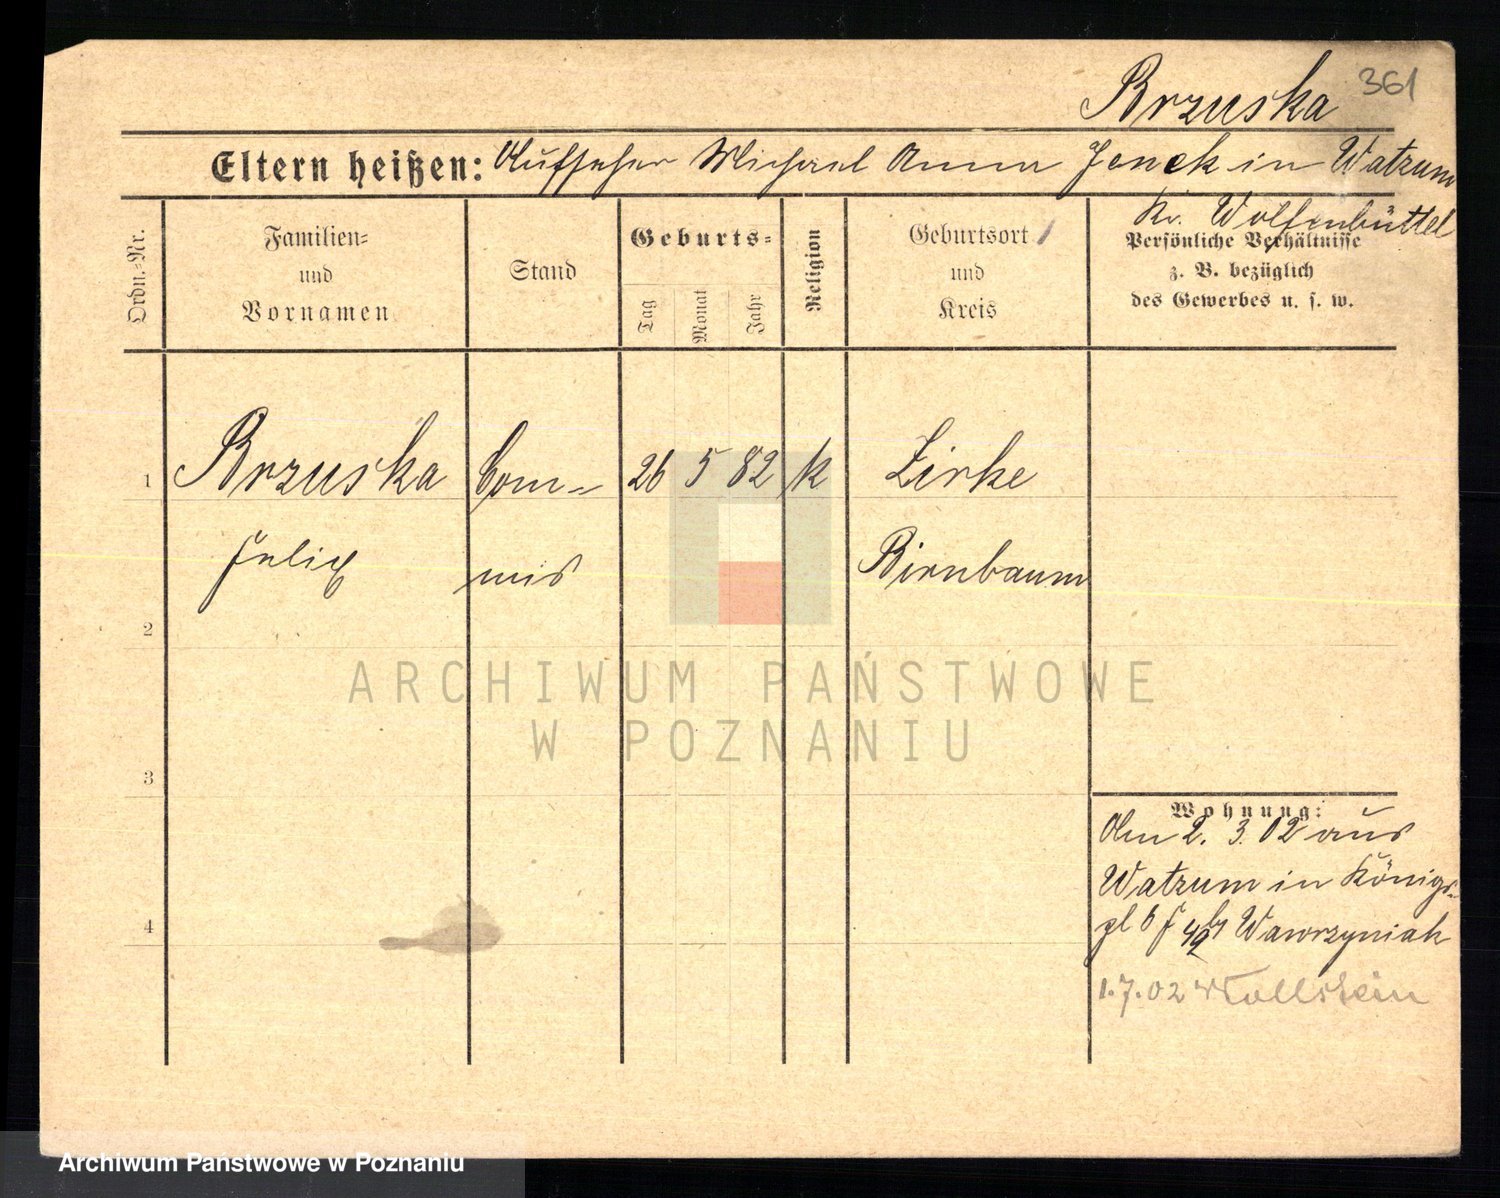 Brzuska 361
Eltern heißen: Aufseher Michael Anna Jenek in Watzum
Kr. Wolfenbüttel
Ordn.-Nr.
Familien-
und
Vornamen
Stand
Geburts-
Tag
Monat
Jahr
Religion
Geburtsort
und
Kreis
Persönliche Verhältnisse
z. B. bezüglich
des Gewerbes u. s. w.
1 Brzuska Com- 26 5 82 k Zirke
Felix mis Birnbaum
2
3
4
Wohnung:
Am 2. 3. 02 aus
Watzum in Königs-
pl 6 Wawrzyniak
1.7.02 Wollstein
ARCHIWUM PAŃSTWOWE
W POZNANIU
Archiwum Państwowe w Poznaniu